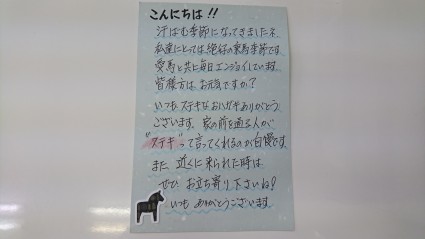 こんにちは!!
汗ばむ季節になってきましたネ
私達にとっては絶好の乗馬季節です
愛馬と共に毎日エンジョイしています
皆様方はお元気ですか?
いつもステキなおハガキありがとう
ございます。家の前を通る人が
"ステキ"って言ってくれるのが自慢です
また近くに来られた時は
ぜひお立ち寄り下さいね!
いつもありがとうございます